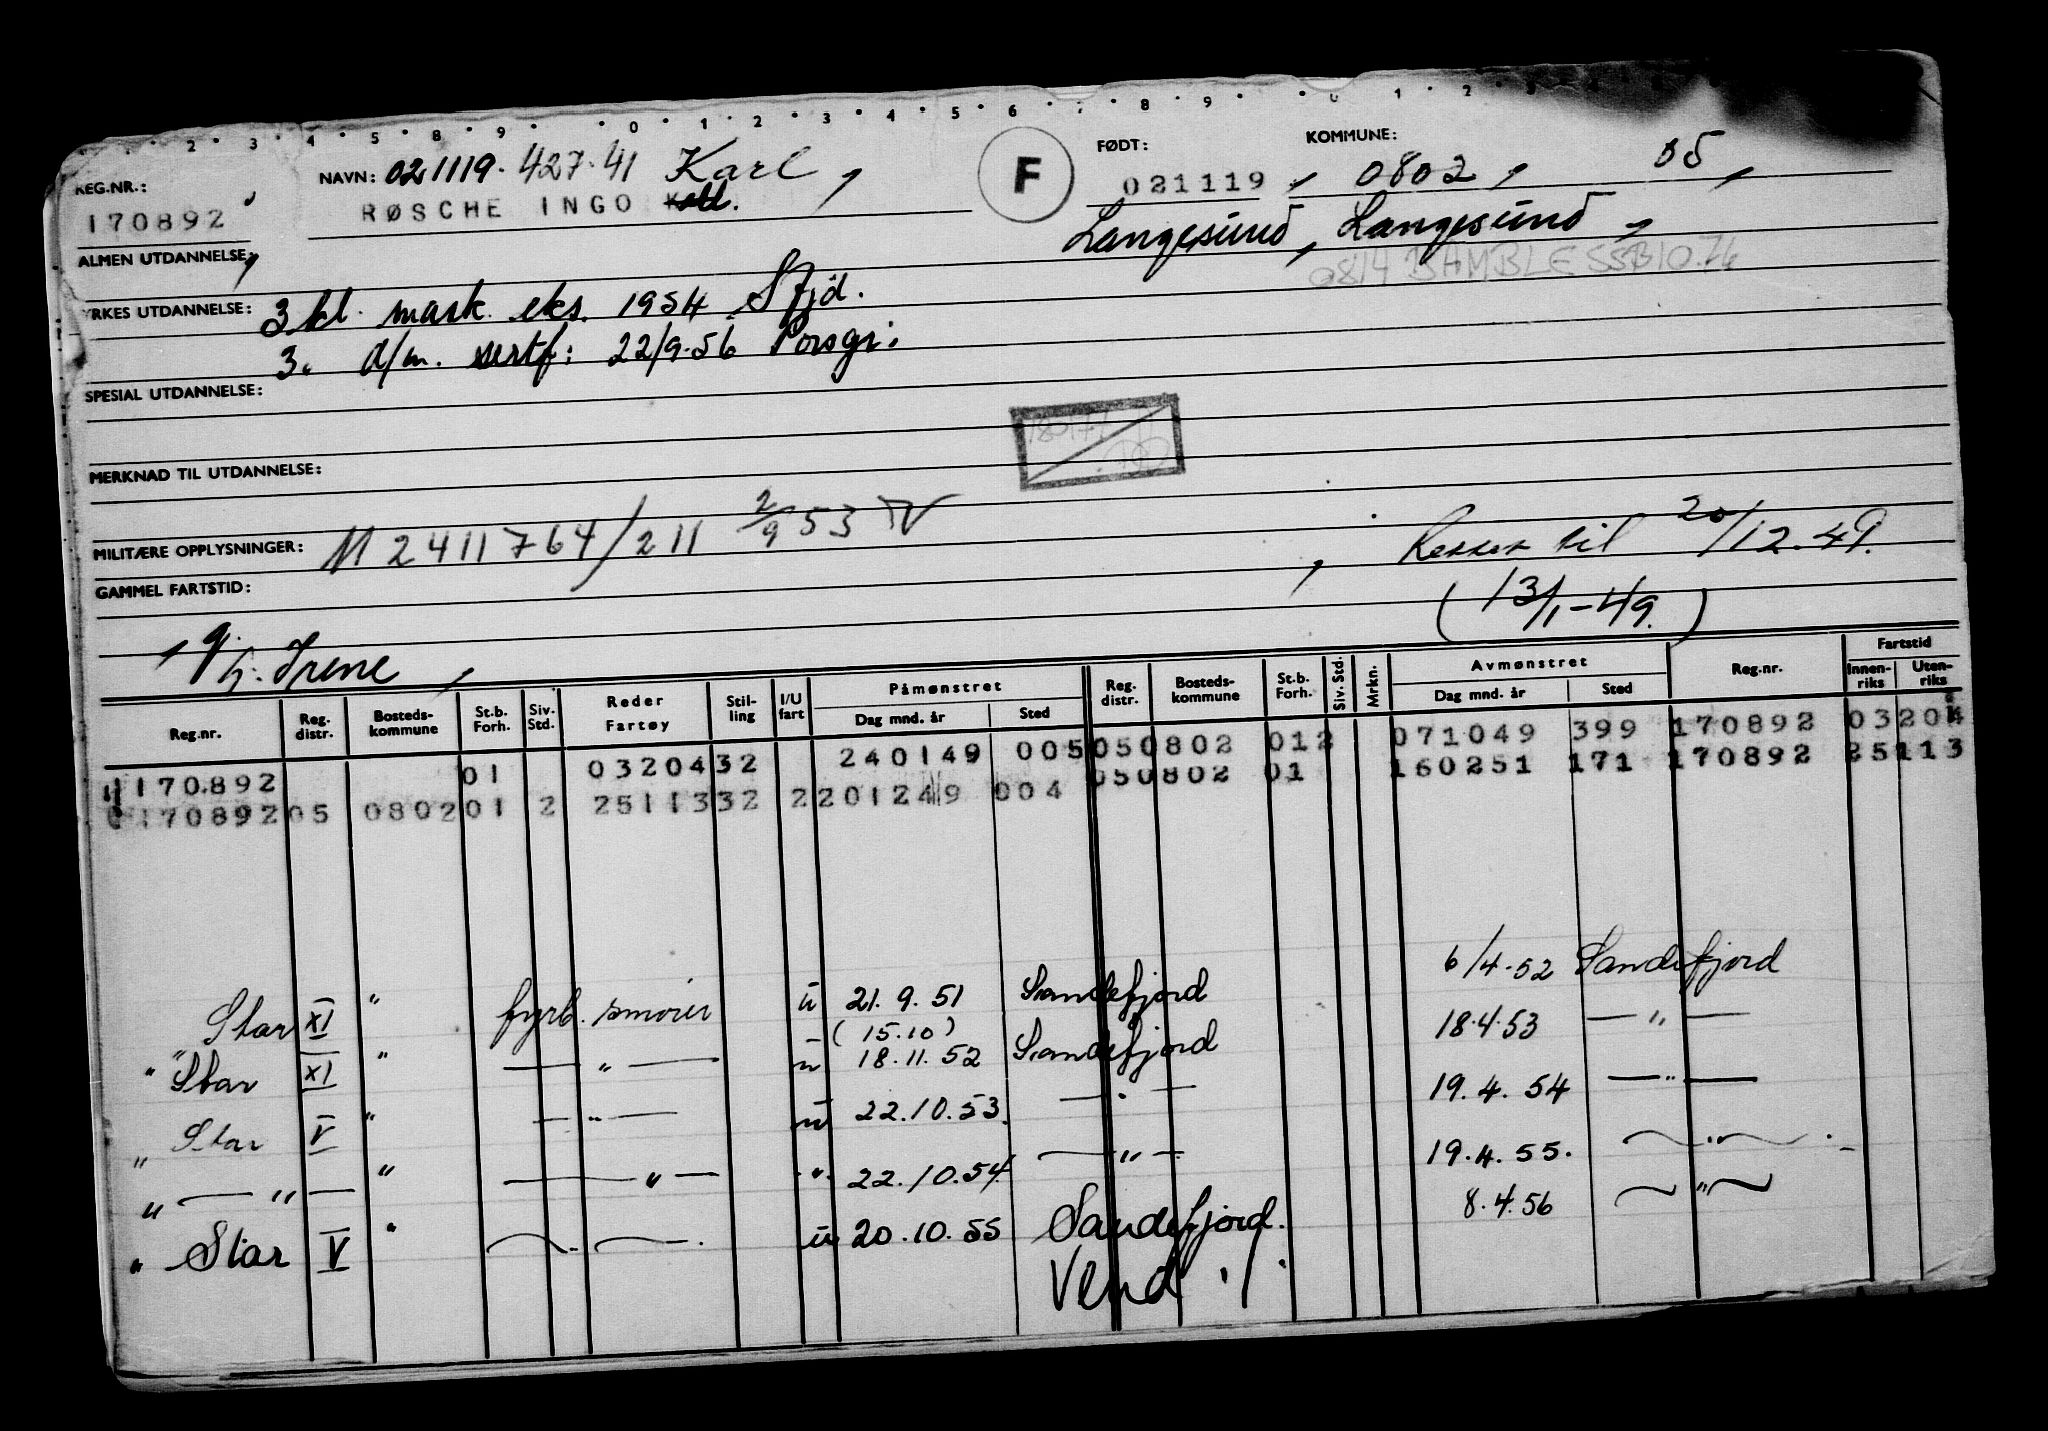 2 3 4 5 8 9 0 1 2 3 4 5 6 7 8 9 0 1 2
REG.NR.:
170892
NAVN: 021119.427.41 Karl,
RØSCHE INGO
F
FØDT:
021119,
KOMMUNE:
0802, 05,
Langesund, Langesund,
0814 BAMBLE SSB 10.76
ALMEN UTDANNELSE:
YRKES UTDANNELSE: 3 kl. mask. eks. 1954 Sfjd.
3. d/m. sertf: 22/9.56 Porsgr:
SPESIAL UTDANNELSE:
MERKNAD TIL UTDANNELSE:
MILITÆRE OPPLYSNINGER: M 2411764/211 2/9 53
GAMMEL FARTSTID:
til 20/12.49.
(13/1-49.)
, g. Irene,
Reg.nr. Reg. distr. Bosteds-kommune St.b. Forh. Siv. Std. Reder Fartøy Stil-ling I/U fart Påmønstret Dag mnd. år Sted Reg. distr. Bosteds-kommune St.b. Forh. Siv. Std. Mrkn. Avmønstret Dag mnd. år Sted Reg.nr. Fartstid Innen-riks Uten-riks
170892 01 03204 32 240149 005 05 0802 012 071049 399 170892 03204
170892 05 0802 01 2 25113 32 2 201249 004 05 0802 01 160251 171 170892 25113
Star XI " fyrb. smører u 21.9.51 Sandefjord 6/4.52 Sandefjord
(15.10)
" Star XI " — " — u 18.11.52 Sandefjord 18.4.53 — " —
" Star V " — " — u 22.10.53. — " — 19.4.54 — " —
" — " — " — " — " 22.10.54 — " — 19.4.55. — " —
" Star V " — " — u 20.10.55 Sandefjord. 8.4.56 — " —
Vend ./.